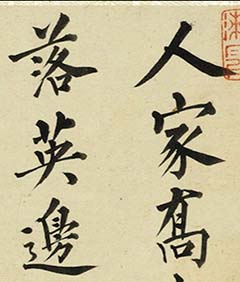 人家髙
落英邊